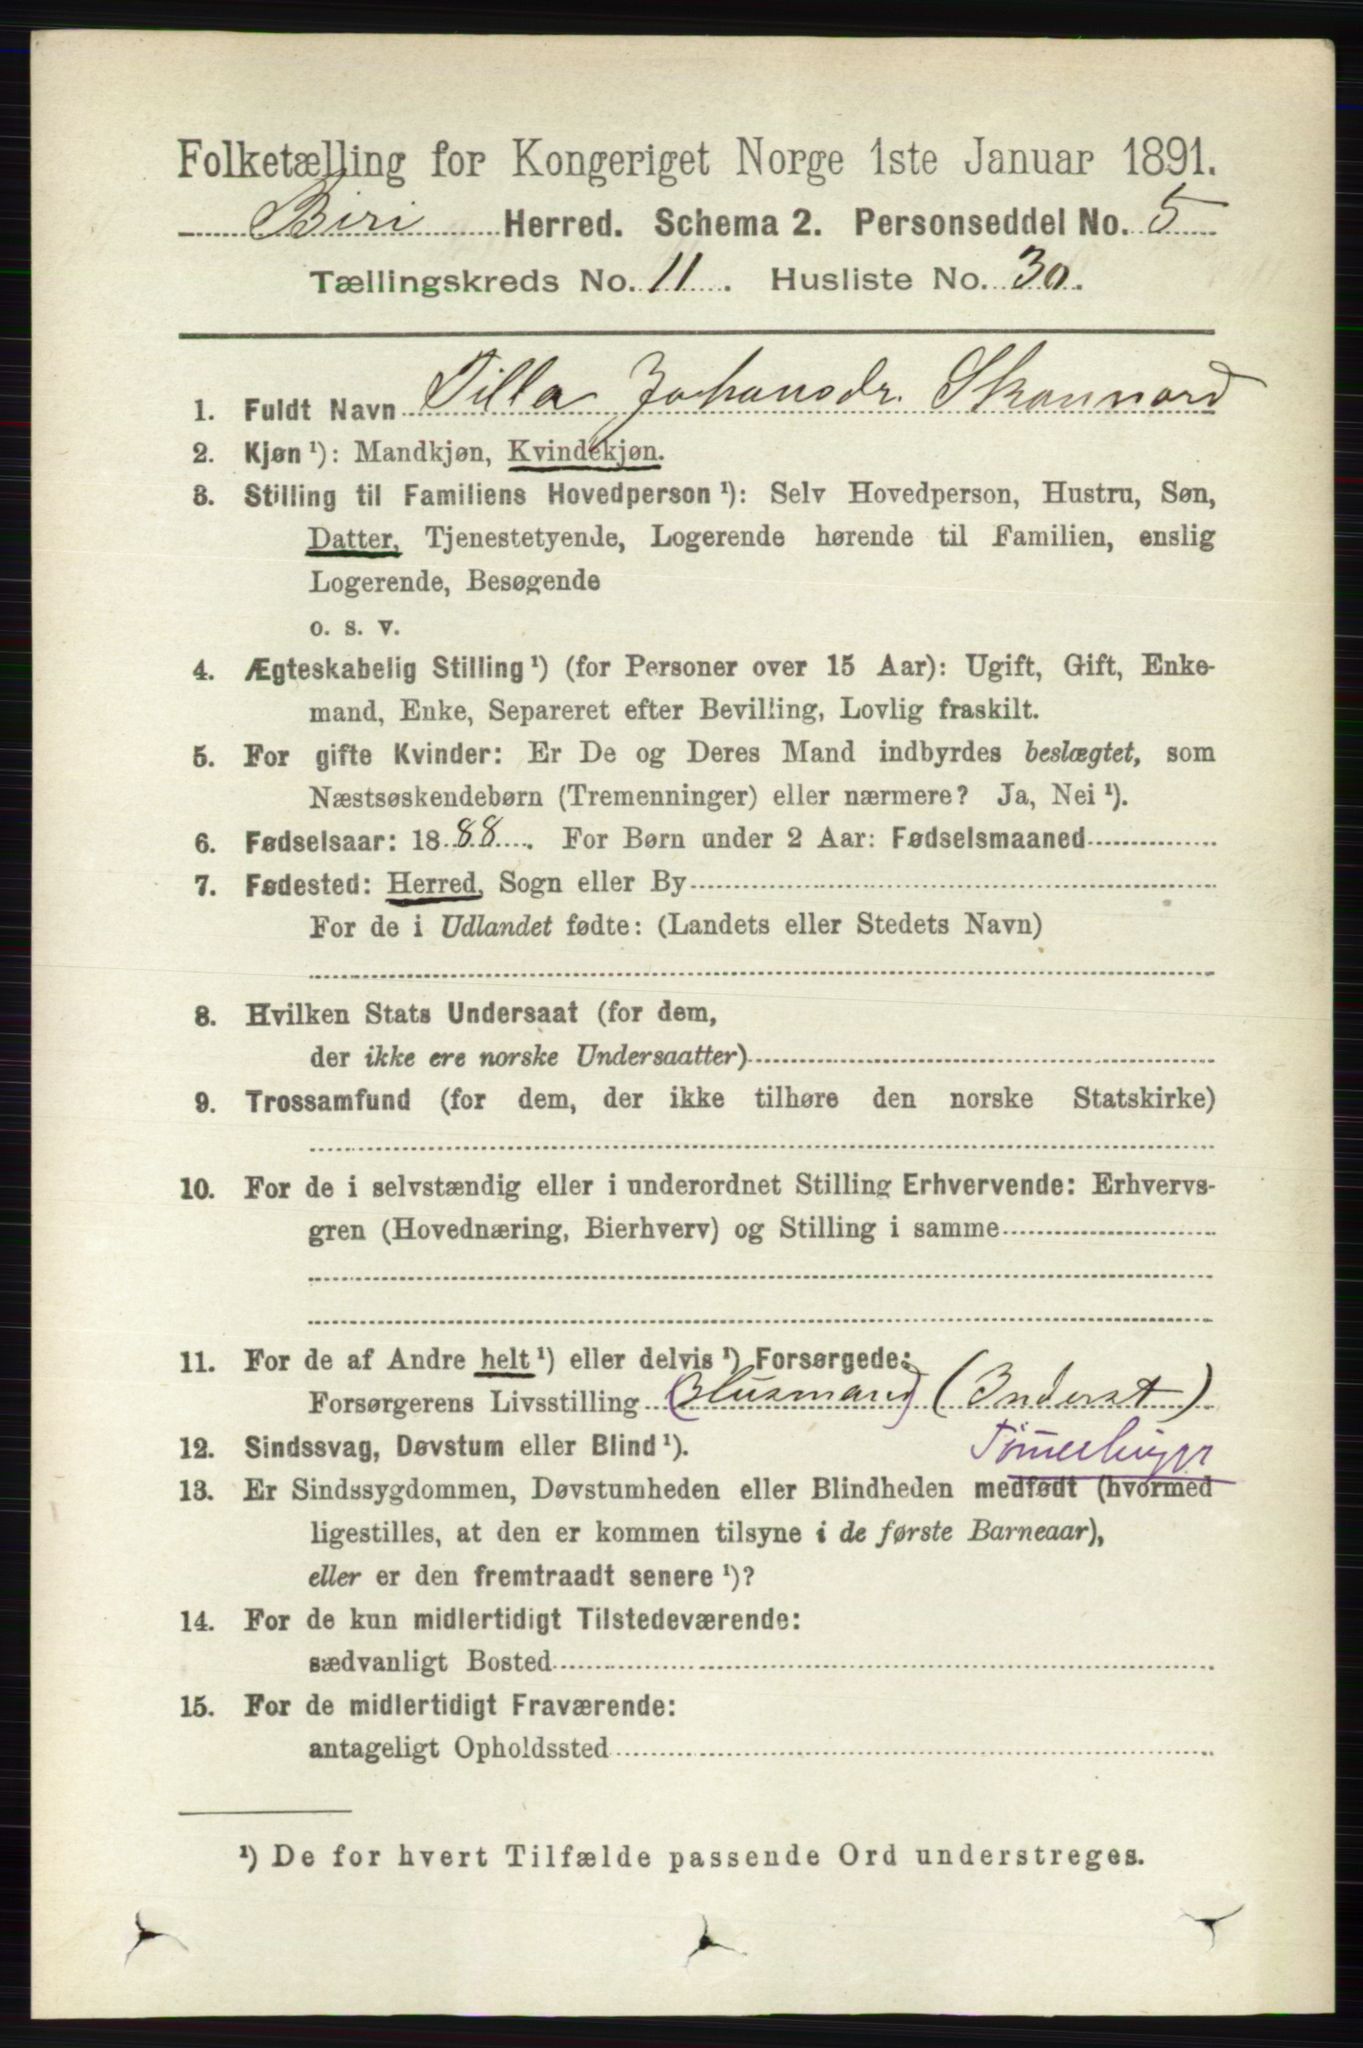 Folketælling for Kongeriget Norge 1ste Januar 1891.
Biri Herred. Schema 2. Personseddel No. 5
Tællingskreds No. 11. Husliste No. 30.
1. Fuldt Navn Tilla Johansdr. Skonnord
2. Kjøn ¹): Mandkjøn, Kvindekjøn.
3. Stilling til Familiens Hovedperson ¹): Selv Hovedperson, Hustru, Søn,
Datter, Tjenestetyende, Logerende hørende til Familien, enslig
Logerende, Besøgende
o. s. v.
4. Ægteskabelig Stilling ¹) (for Personer over 15 Aar): Ugift, Gift, Enke-
mand, Enke, Separeret efter Bevilling, Lovlig fraskilt.
5. For gifte Kvinder: Er De og Deres Mand indbyrdes beslægtet, som
Næstsøskendebørn (Tremenninger) eller nærmere? Ja, Nei ¹).
6. Fødselsaar: 1888. For Børn under 2 Aar: Fødselsmaaned
7. Fødested: Herred, Sogn eller By
For de i Udlandet fødte: (Landets eller Stedets Navn)
8. Hvilken Stats Undersaat (for dem,
der ikke ere norske Undersaatter)
9. Trossamfund (for dem, der ikke tilhøre den norske Statskirke)
10. For de i selvstændig eller i underordnet Stilling Erhvervende: Erhvervs-
gren (Hovednæring, Bierhverv) og Stilling i samme
11. For de af Andre helt ¹) eller delvis ¹) Forsørgede:
Forsørgerens Livsstilling (Husmand) (Inderst)
12. Sindssvag, Døvstum eller Blind ¹). Tømerhugger
13. Er Sindssygdommen, Døvstumheden eller Blindheden medfødt (hvormed
ligestilles, at den er kommen tilsyne i de første Barneaar),
eller er den fremtraadt senere ¹)?
14. For de kun midlertidigt Tilstedeværende:
sædvanligt Bosted
15. For de midlertidigt Fraværende:
antageligt Opholdssted
¹) De for hvert Tilfælde passende Ord understreges.